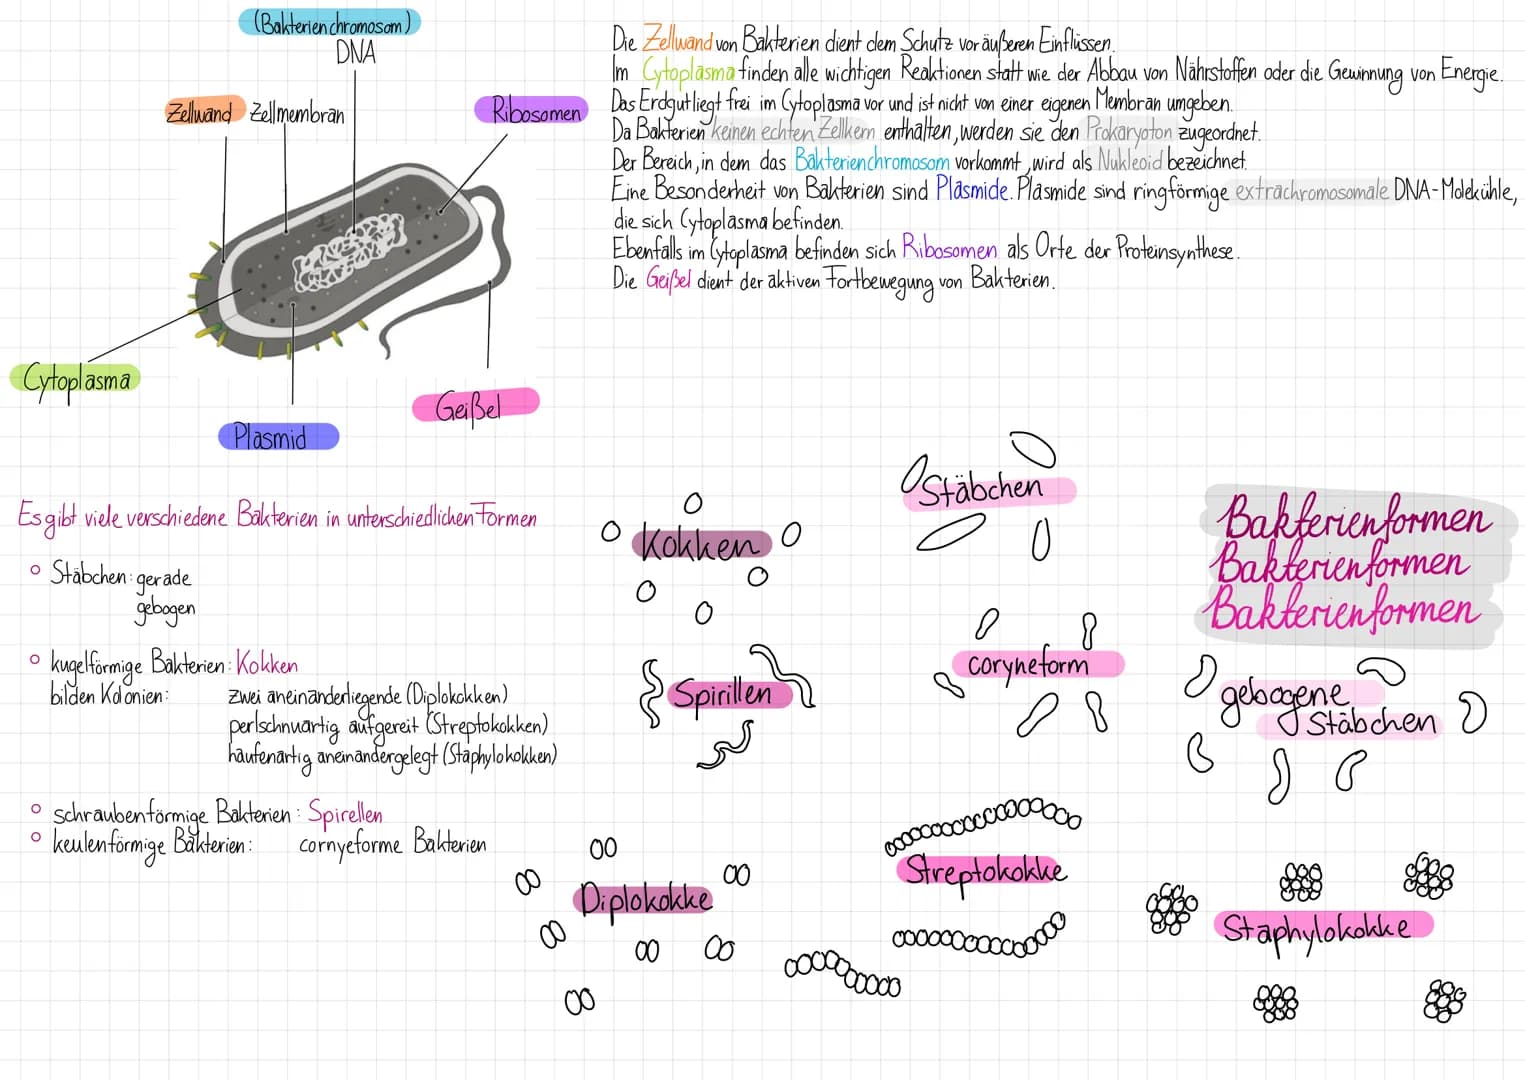 (Bakterienchromosom)
DNA
Zellwand Zellmembran
Ribosomen
Cytoplasma
Plasmid
Geißel
Die Zellwand von Bakterien dient dem Schutz vor äußeren Einflüssen.
Im Cytoplasma finden alle wichtigen Reaktionen statt wie der Abbau von Nährstoffen oder die Gewinnung von Energie.
Das Erdgut liegt frei im Cytoplasma vor und ist nicht von einer eigenen Membran umgeben.
Da Bakterien keinen echten Zellkern enthalten, werden sie den Prokaryoton zugeordnet.
Der Bereich, in dem das Bakterienchromosom vorkommt, wird als Nukleoid bezeichnet.
Eine Besonderheit von Bakterien sind Plasmide. Plasmide sind ringförmige extrachromosomale DNA-Molekühle,
die sich Cytoplasma befinden.
Ebenfalls im Cytoplasma befinden sich Ribosomen als Orte der Proteinsynthese.
Die Geißel dient der aktiven Fortbewegung von Bakterien.
Es gibt viele verschiedene Bakterien in unterschiedlichen Formen
Stäbchen: gerade
gebogen
kugelförmige Bakterien: Kokken
bilden Kolonien: zwei aneinanderliegende (Diplokokken)
perlschnurartig aufgereit (Streptokokken)
haufenartig aneinandergelegt (Staphylokokken)
schraubenförmige Bakterien: Spirellen
keulenförmige Bakterien: cornyeforme Bakterien
Kokken
Stäbchen
Bakterienformen
Bakterienformen
Bakterienformen
Spirillen
coryneform
gebogene
Stäbchen
Diplokokke
Streptokokke
Staphylokokke